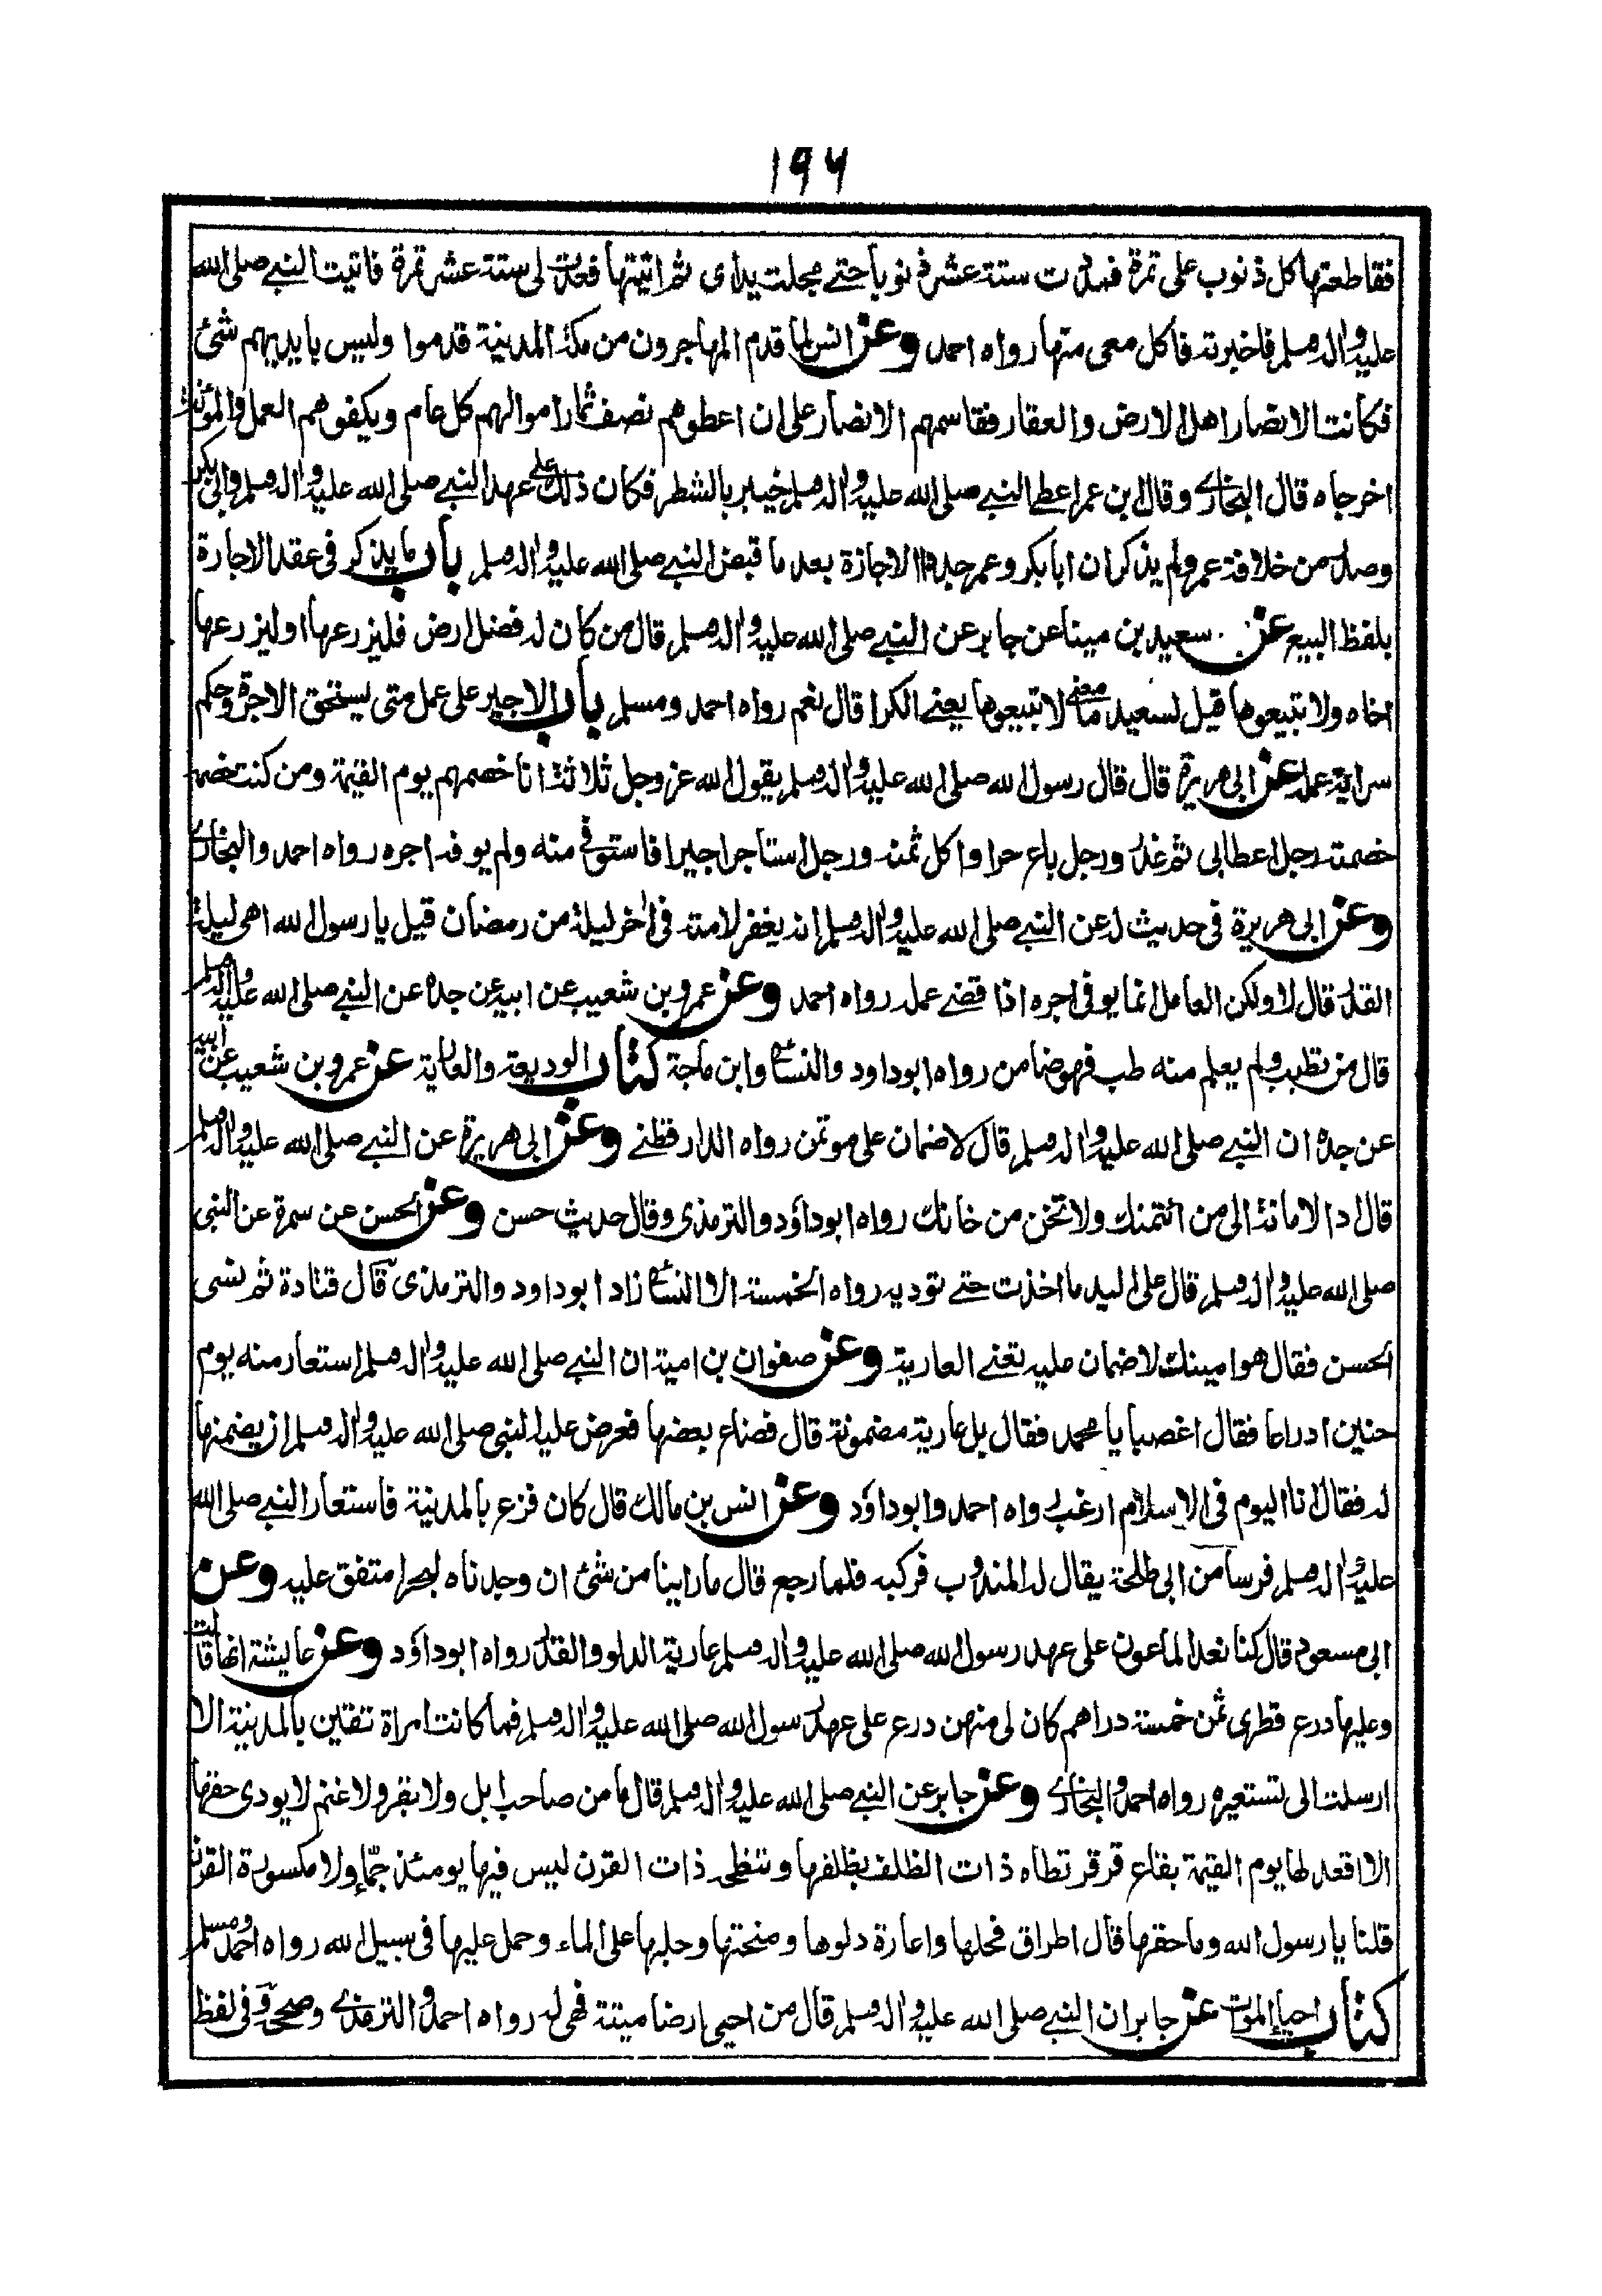 ١٩٦
فقاطعتها كل ذنوب على تمرة فمددت ستة عشر ذنوبا حتے مجلت يداى ثم اتيتها فعدت لى ستة عشر تمرة فاتيت النبے صلى الله
عليه واله وسلم فاخبرته فاكل معى منها رواه احمد وعن انس لما قدم المهاجرون من مكة المدينة قدموا وليس بايديهم شئ
فكانت الانصار اهل الارض والعقار فقاسمهم الانصار على ان اعطوهم نصف ثمار اموالهم كل عام ويكفوهم العمل والمؤنة
اخرجاه قال البخارے وقال ابن عمر اعطے النبے صلى الله عليه واله وسلم خيبر بالشطر فكان ذلك على عهد النبے صلى الله عليه واله وسلم وابى بكر
وصدرا من خلافة عمر ولم يذكر ان ابا بكر وعمر جددا الاجازة بعد ما قبض النبے صلى الله عليه واله وسلم باب ما يذكر فى عقد الاجارة
بلفظ البيع عن سعيد بن مينا عن جابر عن النبے صلى الله عليه واله وسلم قال من كان له فضل ارض فليزرعها او ليزرعها
اخاه ولا تبيعوها قيل لسعيد ما معنى لا تبيعوها يعنے الكرا قال نعم رواه احمد ومسلم باب الاجير على عمل متى يستحق الاجرة وحكم
سراية عمله عن ابى هريرة قال قال رسول الله صلى الله عليه واله وسلم يقول الله عز وجل ثلاثة انا خصمهم يوم القيمة ومن كنت خصمه
خصمته رجل اعطا بى ثم غدر ورجل باع حرا واكل ثمنه ورجل استاجر اجيرا فاستوفى منه ولم يوفه اجره رواه احمد والبخارے
وعن ابى هريرة فى حديث له عن النبے صلى الله عليه واله وسلم انه يغفر لامته فى اٰخر ليلة من رمضان قيل يا رسول الله اهى ليلة
القدر قال لا ولكن العامل انما يوفى اجره اذا قضے عمله رواه احمد وعن عمرو بن شعيب عن ابيه عن جده عن النبے صلى الله عليه واله وسلم
قال من تطبب ولم يعلم منه طب فهو ضامن رواه ابو داود والنسائى وابن ماجة كتاب الوديعة والعارية عن عمرو بن شعيب عن ابيه
عن جده ان النبے صلى الله عليه واله وسلم قال لا ضمان على موتمن رواه الدارقطنے وعن ابى هريرة عن النبے صلى الله عليه واله وسلم
قال اد الامانة الى من ائتمنك ولا تخن من خانك رواه ابو داؤد والترمذى وقال حديث حسن وعن الحسن عن سمرة عن النبى
صلى الله عليه واله وسلم قال على اليد ما اخذت حتے توديه رواه الخمسة الا النسائى زاد ابو داود والترمذى قال قتادة ثم نسى
الحسن فقال هو امينك لا ضمان عليه تعنے العارية وعن صفوان بن امية ان النبے صلى الله عليه واله وسلم استعار منه يوم
حنين ادراعا فقال اغصبا يا محمد فقال بل عارية مضمونة قال فضاع بعضها فعرض عليه النبى صلى الله عليه واله وسلم ان يضمنها
له فقال انا اليوم فى الاسلام ارغب رواه احمد وابو داؤد وعن انس بن مالك قال كان فزع بالمدينة فاستعار النبے صلى الله
عليه واله وسلم فرسا من ابى طلحة يقال له المندوب فركبه فلما رجع قال ما راينا من شئ ان وجدناه لبحرا متفق عليه وعن
ابى مسعود قال كنا نعد الماعون على عهد رسول الله صلى الله عليه واله وسلم عارية الدلو والقدر رواه ابو داؤد وعن عايشة انها قالت
وعليها درع قطرى ثمن خمسة دراهم كان لى منهن درع على عهد رسول الله صلى الله عليه واله وسلم فما كانت امراة تقين بالمدينة الا
ارسلت الى تستعيره رواه احمد والبخارے وعن جابر عن النبے صلى الله عليه واله وسلم قال ما من صاحب ابل ولا بقر ولا غنم لا يودى حقها
الا اقعد لها يوم القيمة بقاع قرقر تطاه ذات الظلف بظلفها وتنطحه ذات القرن ليس فيها يومئذ جمّاء ولا مكسورة القرن
قلنا يا رسول الله وما حقها قال اطراق فحلها واعارة دلوها ومنحتها وحلبها على الماء وحمل عليها فى سبيل الله رواه احمد ومسلم
كتاب احياء الموات عن جابر ان النبے صلى الله عليه واله وسلم قال من احيى ارضا ميتة فهى له رواه احمد والترمذے وصححه وفى لفظ